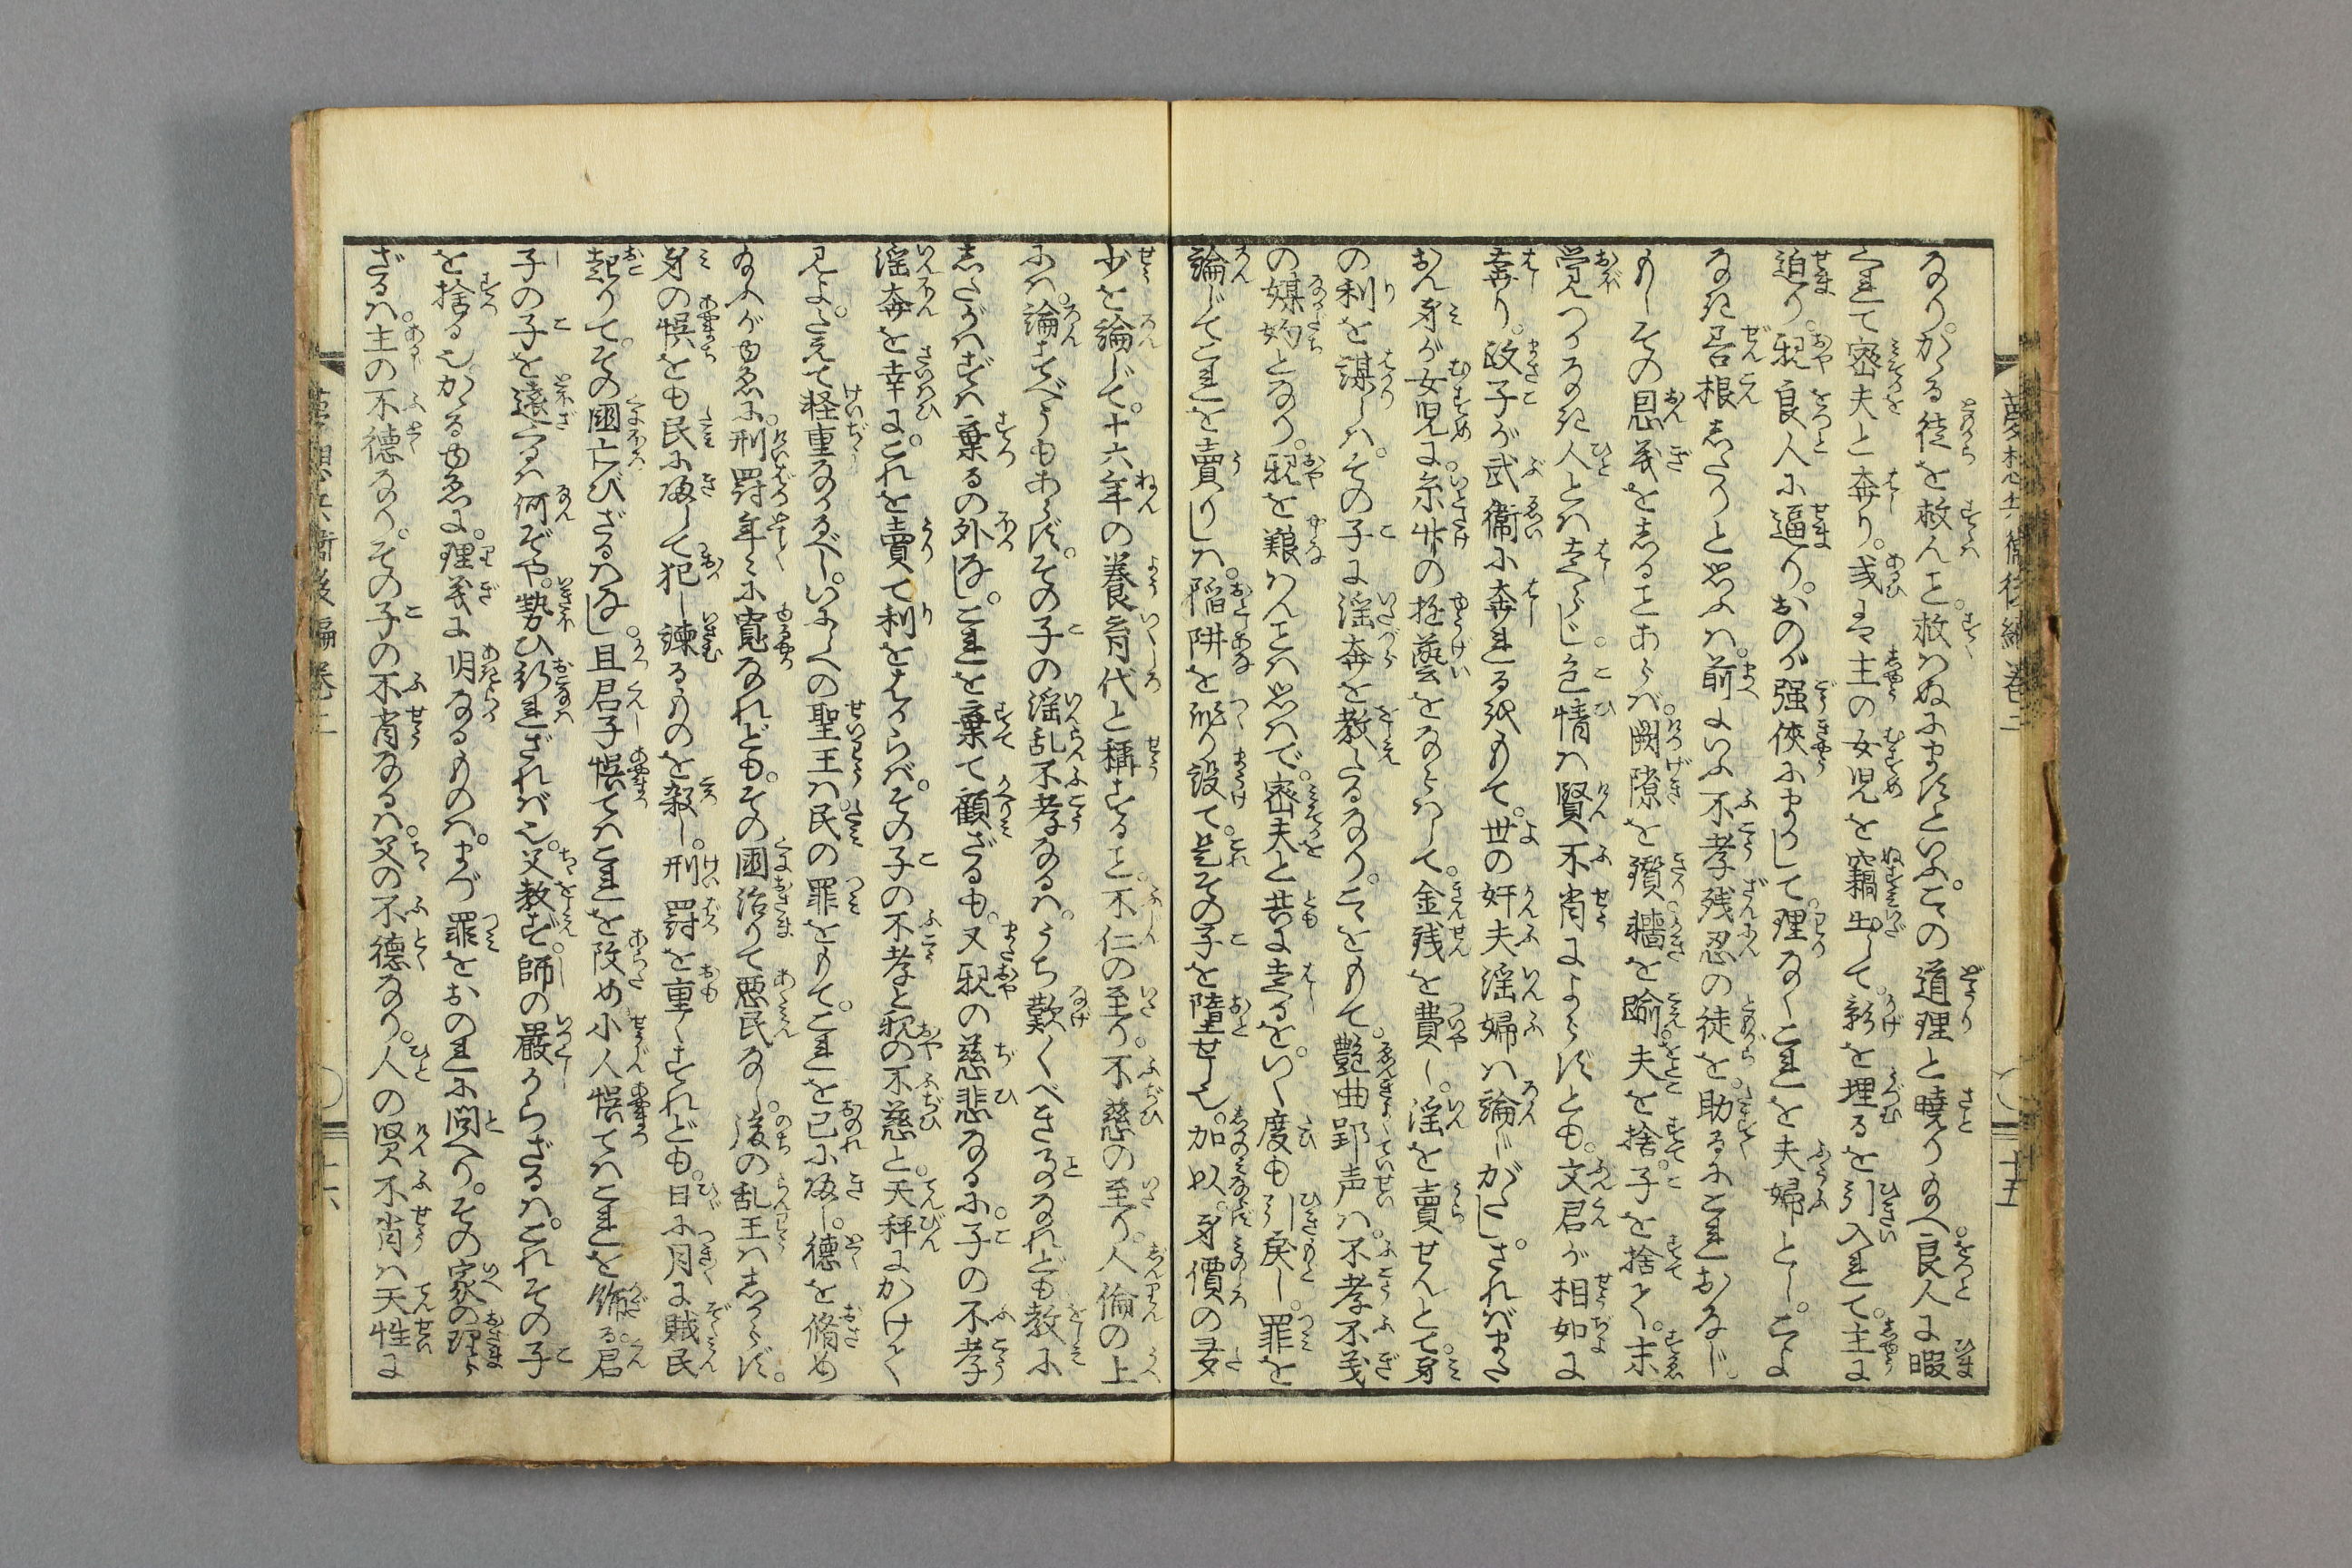 なり。かゝる徒を救んと。救はぬにますといふ。この道理と曉り給へ。良人に暇
くれて密夫と奔り。或は主の女児を竊出して。影を埋るを引入れて。主に
迫り。親良人に逼り。おのが強侠にまかして。理なくこれを夫婦とし。こよ
なき善根したりと思ふは。前にいふ不孝残忍の徒を。助るにこれおなじ。
もしその恩義をしることあらば。𨵝隙を鑽。牆を踰。夫を捨。子を捨て。末
覚つかなき人とは走らじ。色情は賢不肖によらずとも。文君が相如に
奔り。政子が武衛に奔れる抔もて。世の奸夫淫婦は論じがたし。さればまた
おん身が女児に。糸竹の遊藝をならはして。金銭を費し。淫を賣せんとて。身
の利を謀しは。その子に淫奔を教たるなり。こをもて。艶曲郢声は。不孝不義
の媒妁となり。親を養はんとは思はで。密夫と共に走るを。いく度も引戻し。罪を
論じてこれを賣りしは。陥阱を作り設て。是その子を墮せし也。加以。身價の多
少を論じて。十六年の養育代と稱すること。不仁の至り。不慈の至り。人倫の上
には。論ずべうもあらず。その子の淫乱不孝なるは。うち歎くべきことなれども教に
したがはずは棄るの外なし。これを棄て顧ざるも。又親の慈悲なるに。子の不孝
淫奔を幸に。これを賣て利をはからば。その子の不孝と親の不慈と。天秤にかけて
見よ。さえて軽重なかるべし。いにしへの聖王は。民の罪をもて。これを己に皈し。德を脩め
給ふがゆゑに。刑罰年々に寛なれども。その國治りて悪民なし。後の乱王はしからず。
身の悞をも民に皈して犯し諫るものを殺し。刑罰を重くすれども。日に月に賊民
起りて。その國亡びざるはなし。且君子悞てはこれを改め小人悞てはこれを飾る。君
子の子を遠ざくるは何ぞや。勢ひ行れざれば也。父教ず。師の嚴からざるは。これその子
を捨る也。かゝるゆゑに。理義に明なるものは。まづ罪をおのれに問へり。その家の理ら
ざるは。主の不德なり。その子の不肖なるは。父の不德なり。人の賢不肖は天性に